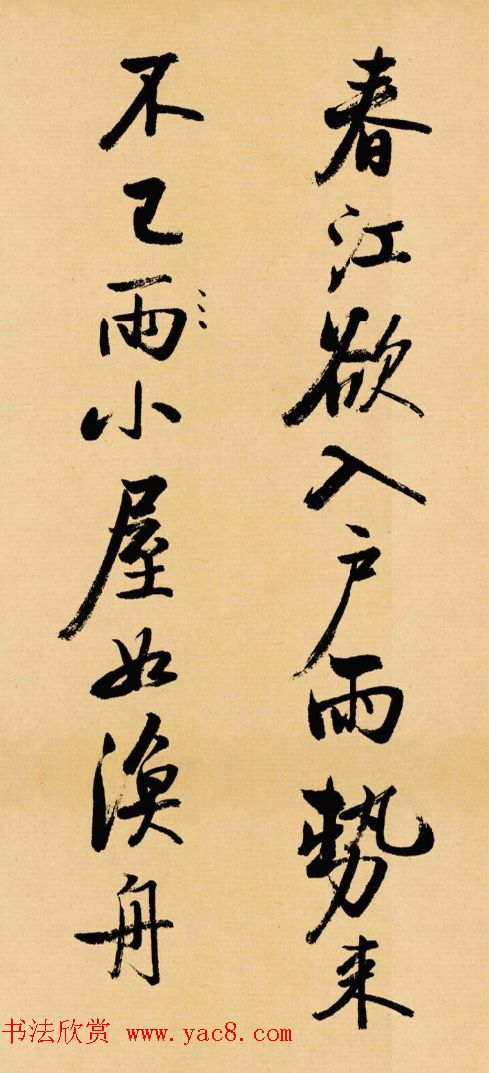 春江欲入户雨勢来
不已雨小屋如漁舟
书法欣赏 www.yac8.com